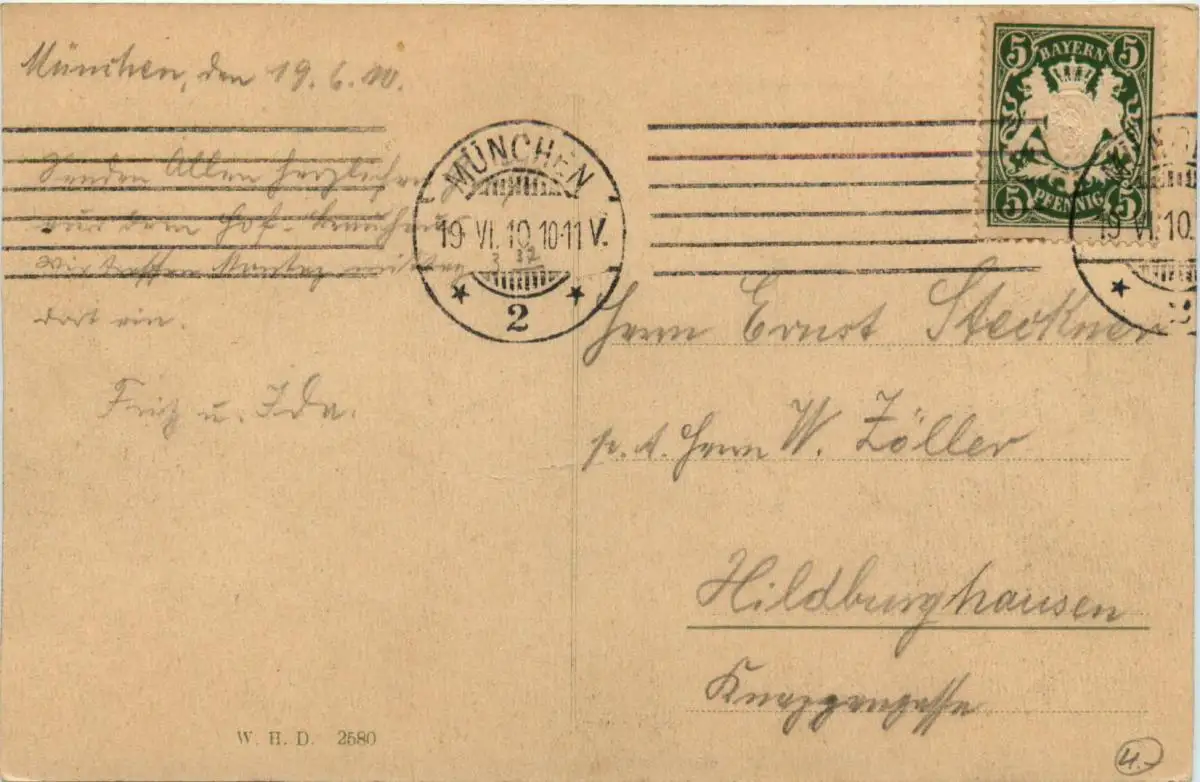 München, den 19.6.10.
Senden Allen herzlichen
aus dem Hof-Bräuhaus
wir treffen Montag mittag
dort ein.
Fritz u. Ida.
MÜNCHEN
19 VI. 10. 10-11 V.
3 32
2
5 BAYERN 5
5 PFENNIG 5
19 VI. 10.
Herrn Ernst Steckner
p. A. Herrn W. Zöller
Hildburghausen
Knappengasse
W. H. D. 2580
4.-